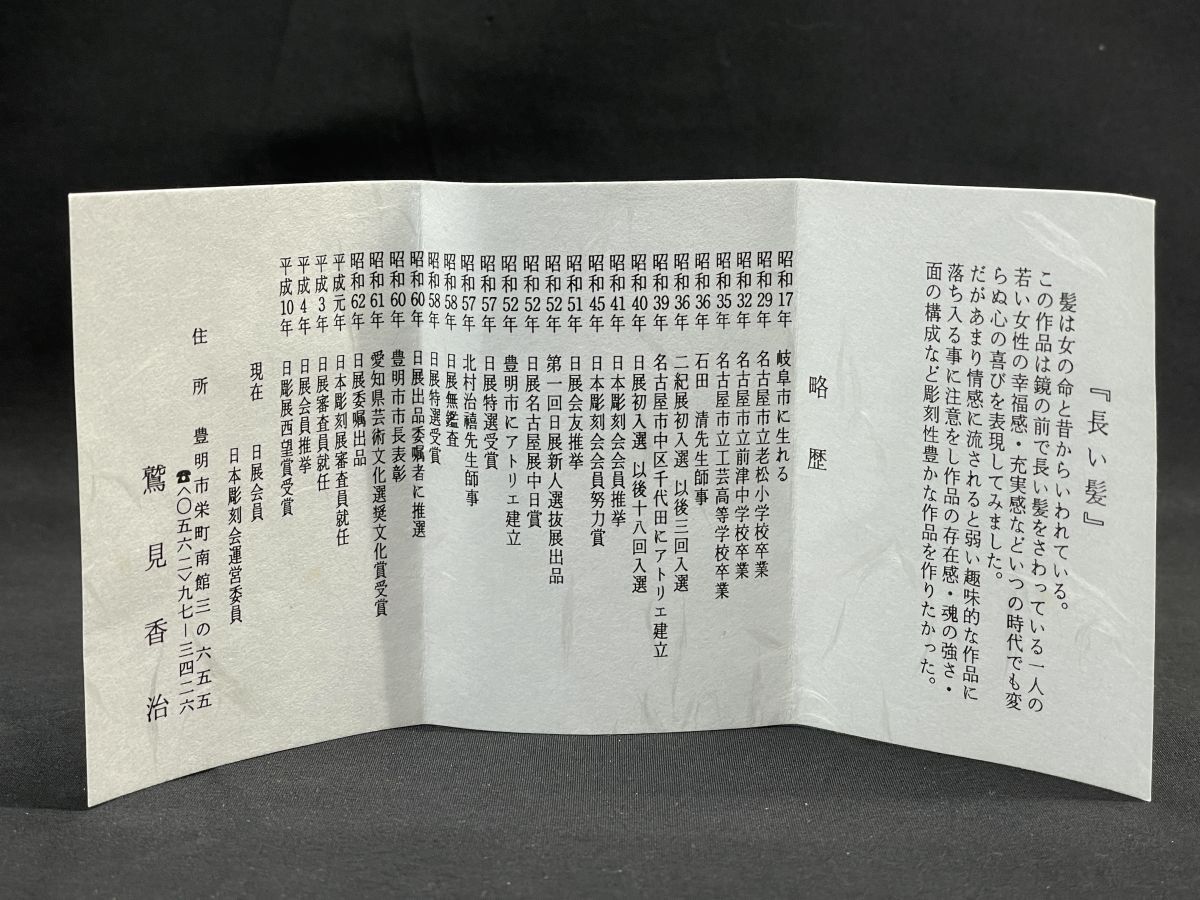 『長い髪』
髪は女の命と昔からいわれている。
この作品は鏡の前で長い髪をさわっている一人の
若い女性の幸福感・充実感などいつの時代でも変
らぬ心の喜びを表現してみました。
だがあまり情感に流されると弱い趣味的な作品に
落ち入る事に注意をし作品の存在感・魂の強さ・
面の構成など彫刻性豊かな作品を作りたかった。
略歴
昭和17年 岐阜市に生れる
昭和29年 名古屋市立老松小学校卒業
昭和32年 名古屋市立前津中学校卒業
昭和35年 名古屋市立工芸高等学校卒業
昭和36年 石田 清先生師事
昭和36年 二紀展初入選 以後三回入選
昭和39年 名古屋市中区千代田にアトリエ建立
昭和40年 日展初入選 以後十八回入選
昭和41年 日本彫刻会会員推挙
昭和45年 日本彫刻会会員努力賞
昭和51年 日展会友推挙
昭和52年 第一回日展新人選抜展出品
昭和52年 日展名古屋展中日賞
昭和52年 豊明市にアトリエ建立
昭和57年 日展特選受賞
昭和57年 北村治禧先生師事
昭和58年 日展無鑑査
昭和58年 日展特選受賞
昭和60年 日展出品委嘱者に推選
昭和60年 豊明市市長表彰
昭和61年 愛知県芸術文化選奨文化賞受賞
昭和62年 日展委嘱出品
平成元年 日本彫刻展審査員就任
平成3年 日展審査員就任
平成4年 日展会員推挙
平成10年 日彫展西望賞受賞
現在 日展会員
日本彫刻会運営委員
住所 豊明市栄町南館三の六五五
☎〈〇五六二〉九七ー三四二六
鷲見香治